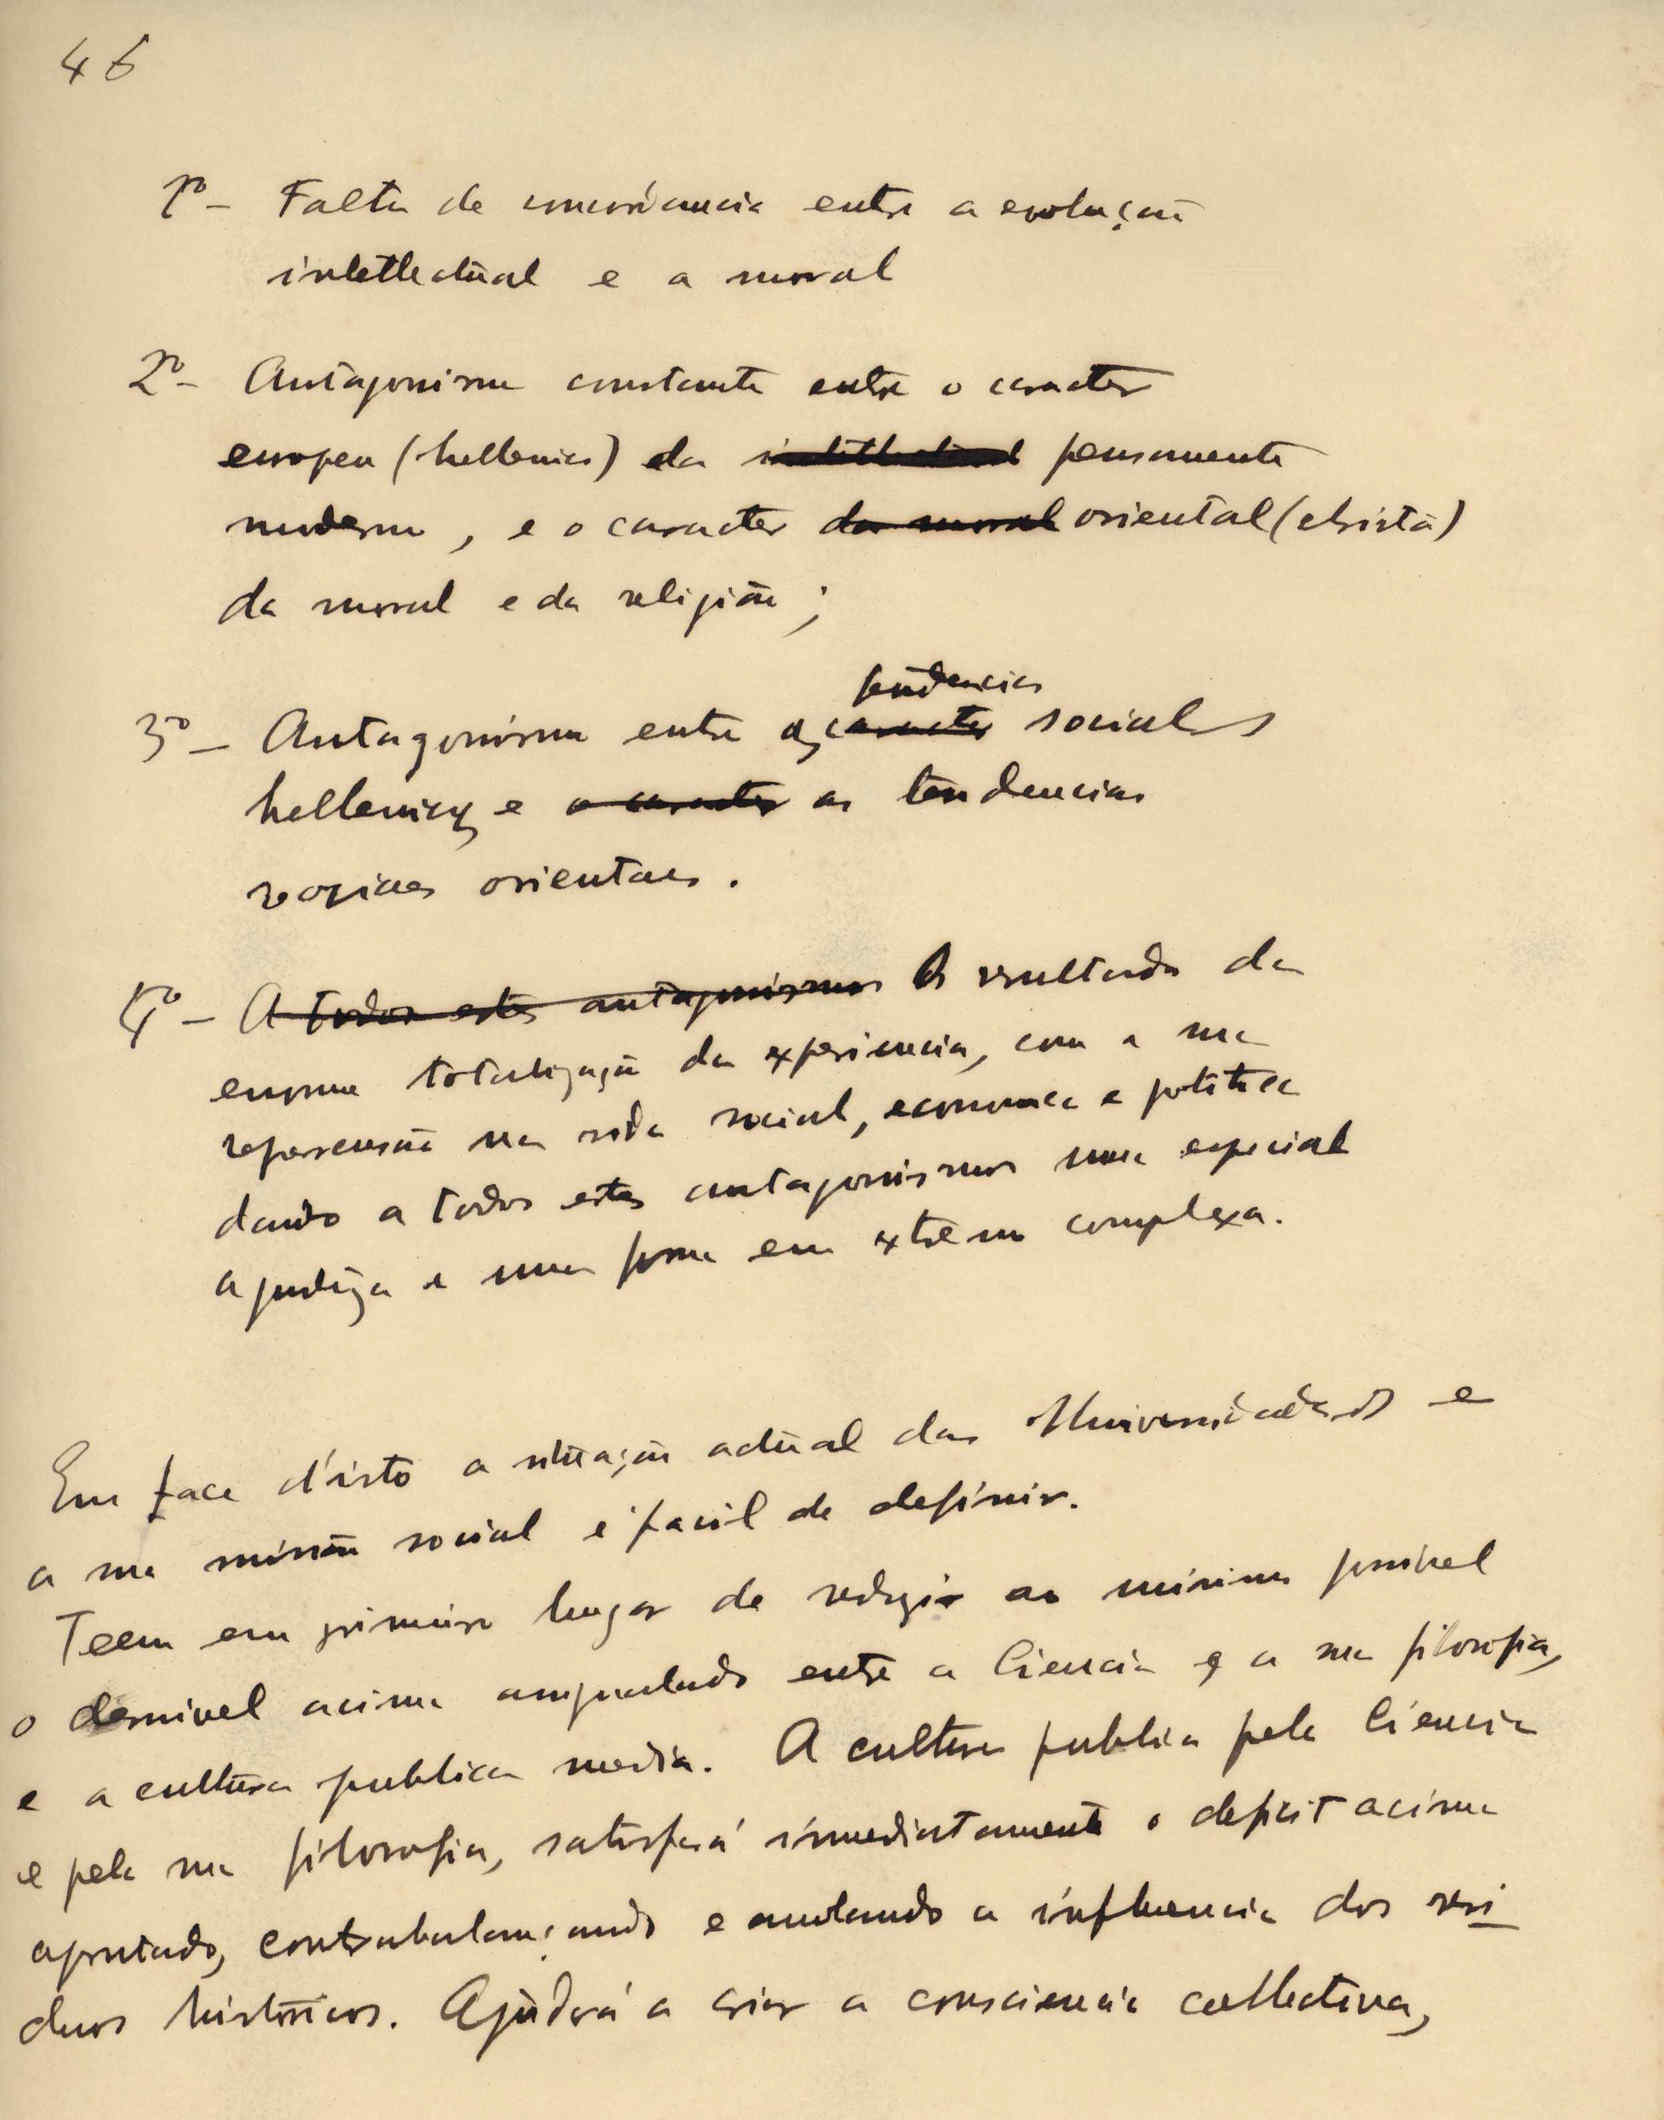 46
1º - Falta de concordancia entre a evolução
intellectual e a moral
2º - Antagonismo constante entre o caracter
europeu (hellenico) do intellectual pensamento
moderno, e o caracter da moral oriental (christã)
da moral e da religião;
tendencias
3º - Antagonismo entre as caracter sociaes
hellenicas e o caracter as tendencias
orientaes.
4º - A todos estes antagonismos O resultado da
enorme totalização da experiencia, com a sua
repercussão na vida social, economica e politica
dando a todos estes antagonismos uma especial
agudeza e uma forma em extremo complexa.
Em face d'isto a situação actual das Universidades e
a sua missão social é facil de definir.
Teem em primeiro lugar de reduzir ao minimo possivel
o desnivel acima apontado entre a Ciencia e a sua filosofia,
e a cultura publica media. A cultura publica pela Ciencia
e pela sua filosofia, satisfará immediatamente o deficit acima
apontado, contrabalançando e anulando a influencia dos resi
duos históricos. Ajudará a criar a consciencia collectiva,